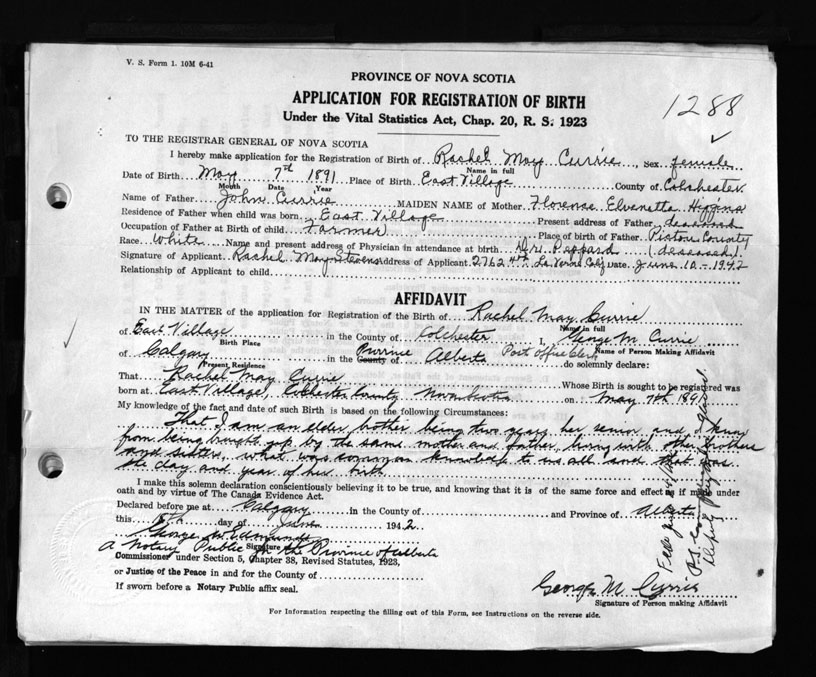 V. S. Form 1. 10M 6-41
PROVINCE OF NOVA SCOTIA
APPLICATION FOR REGISTRATION OF BIRTH
Under the Vital Statistics Act, Chap. 20, R. S. 1923
1288
TO THE REGISTRAR GENERAL OF NOVA SCOTIA
I hereby make application for the Registration of Birth of Rachel May Currie, Sex female
Name in full
Date of Birth May 7th 1891 Place of Birth East Village County of Colchester
Month Date Year
Name of Father John Currie MAIDEN NAME of Mother Florence Elvenetta Higgins
Residence of Father when child was born East Village Present address of Father deceased
Occupation of Father at Birth of child Farmer Place of birth of Father Pictou County
Race White Name and present address of Physician in attendance at birth Dr. Peppard (deceased)
Signature of Applicant Rachel May Stevens Address of Applicant 2762 4th La Verne Calif Date June 10 - 1942
Relationship of Applicant to child
AFFIDAVIT
IN THE MATTER of the application for Registration of the Birth of Rachel May Currie
Name in full
of East Village in the County of Colchester I, George M. Currie
Birth Place Name of Person Making Affidavit
of Calgary in the Province County of Alberta Post Office Clerk do solemnly declare:
Present Residence
That Rachel May Currie Whose Birth is sought to be registered was
born at East Village, Colchester County Nova Scotia on May 7th 1891
My knowledge of the fact and date of such Birth is based on the following Circumstances:
That I am an elder brother being two years her senior and
from being brought up by the same mother and father, living with other brothers
and sisters, what was common knowledge to us all and that was
the day and year of her birth
I make this solemn declaration conscientiously believing it to be true, and knowing that it is of the same force and effect as if made under
oath and by virtue of The Canada Evidence Act.
Declared before me at Calgary in the County of and Province of Alberta
this 15th day of June 1942.
George W. Edmunds
Signature
A Notary Public for the Province of Alberta
Commissioner under Section 5, Chapter 38, Revised Statutes, 1923,
or Justice of the Peace in and for the County of
If sworn before a Notary Public affix seal.
George M. Currie
Signature of Person making Affidavit
For Information respecting the filling out of this Form, see Instructions on the reverse side.